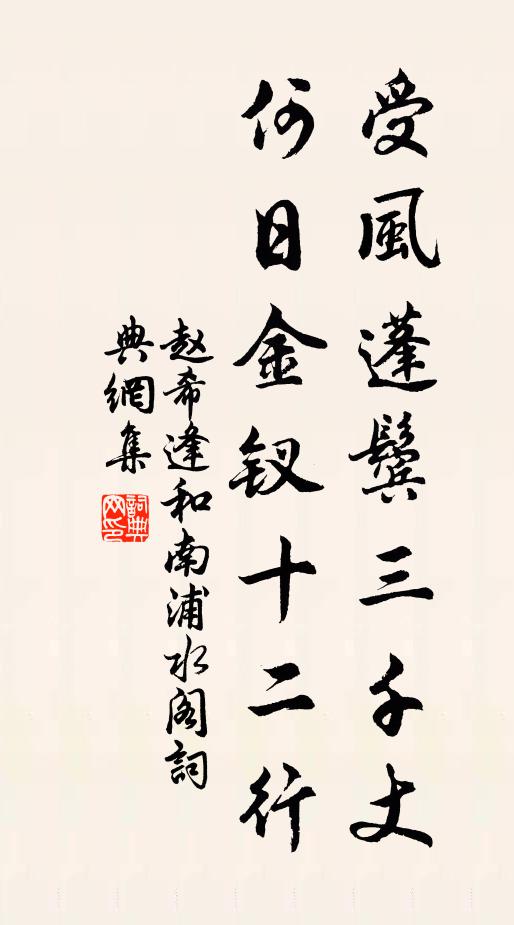 受風蓬鬢三千丈
何日金釵十二行
赵希逢和南浦水阁詞
典網集
詞典
网印